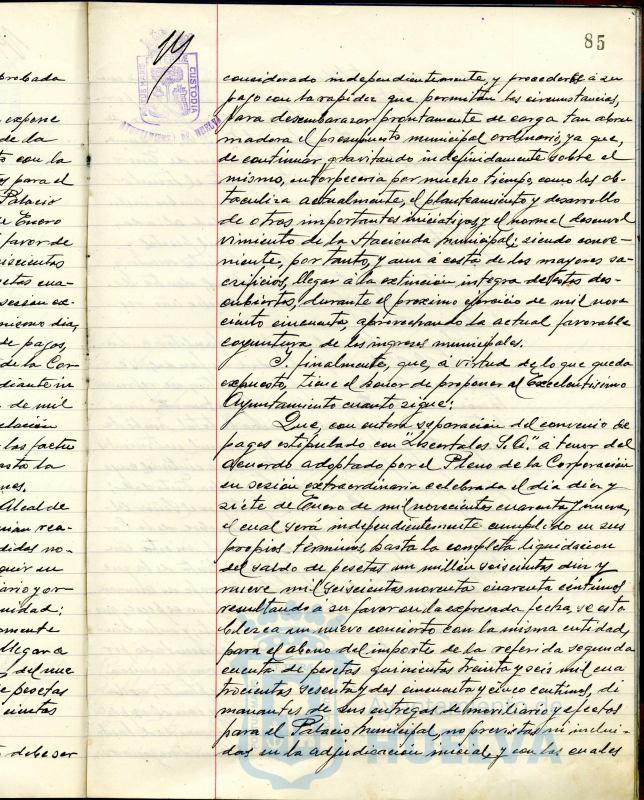 85
probada
expone
de la
con la
para el
Palacio
Enero
favor de
setas cua-
sesión ex-
mismo dia,
de pagos,
de la Cor-
diante in
de mil
las factu
asta la
Alcalde
quir un
ario y or-
unidad:
llegar a
del nue
pesetas
debe ser
CUSTODIA
AYUNTAMIENTO DE HUELVA
considerado independientemente, y procederse á su
pago con la rapidez que permitan las circunstancias,
para desembarazar prontamente de carga tan abru
madora el presupuesto municipal ordinario, ya que,
de continuar gravitando indefinidamente sobre el
mismo, entorpeceria por mucho tiempo, como los obs-
taculiza actualmente, el planteamiento y desarrollo
de otras importantes iniciativas y el normal desenvol
vimiento de la Hacienda municipal; siendo conve-
niente, por tanto, y aun á costa de los mayores sa-
crificios, llegar á la extinción integra de estos des-
cubiertos, durante el proximo ejercicio de mil nove
ciento cincuenta, aprovechando la actual favorable
coyuntura de los ingresos municipales.
Y, finalmente, que, á virtud de lo que queda
expuesto, tiene el honor de proponer al Excelentisimo
Ayuntamiento cuanto sigue:
Que, con entera separación del convenio de
pagos estipulado con "Loscertales S.A." á tenor del
acuerdo adoptado por el Pleno de la Corporación
en sesión extraordinaria celebrada el dia diez y
siete de Enero de mil novecientos cuarenta y nueve,
el cual será independientemente cumplido en sus
propios términos, hasta la completa liquidacion
del saldo de pesetas un millón seiscientas diez y
nueve mil seiscientas noventa cuarenta céntimos
resultando á su favor en la expresada fecha, se esta
blezca un nuevo concierto con la misma entidad,
para el abono del importe de la referida segunda
cuenta de pesetas quinientas treinta y seis mil cua
trocientas sesenta y dos cincuenta y cinco centimos, di
manantes de sus entregas de moviliario y efectos
para el Palacio Municipal, no previstas ni inclui-
das en la adjudicación inicial, y con las cuales
Ayuntamiento de
HUELVA